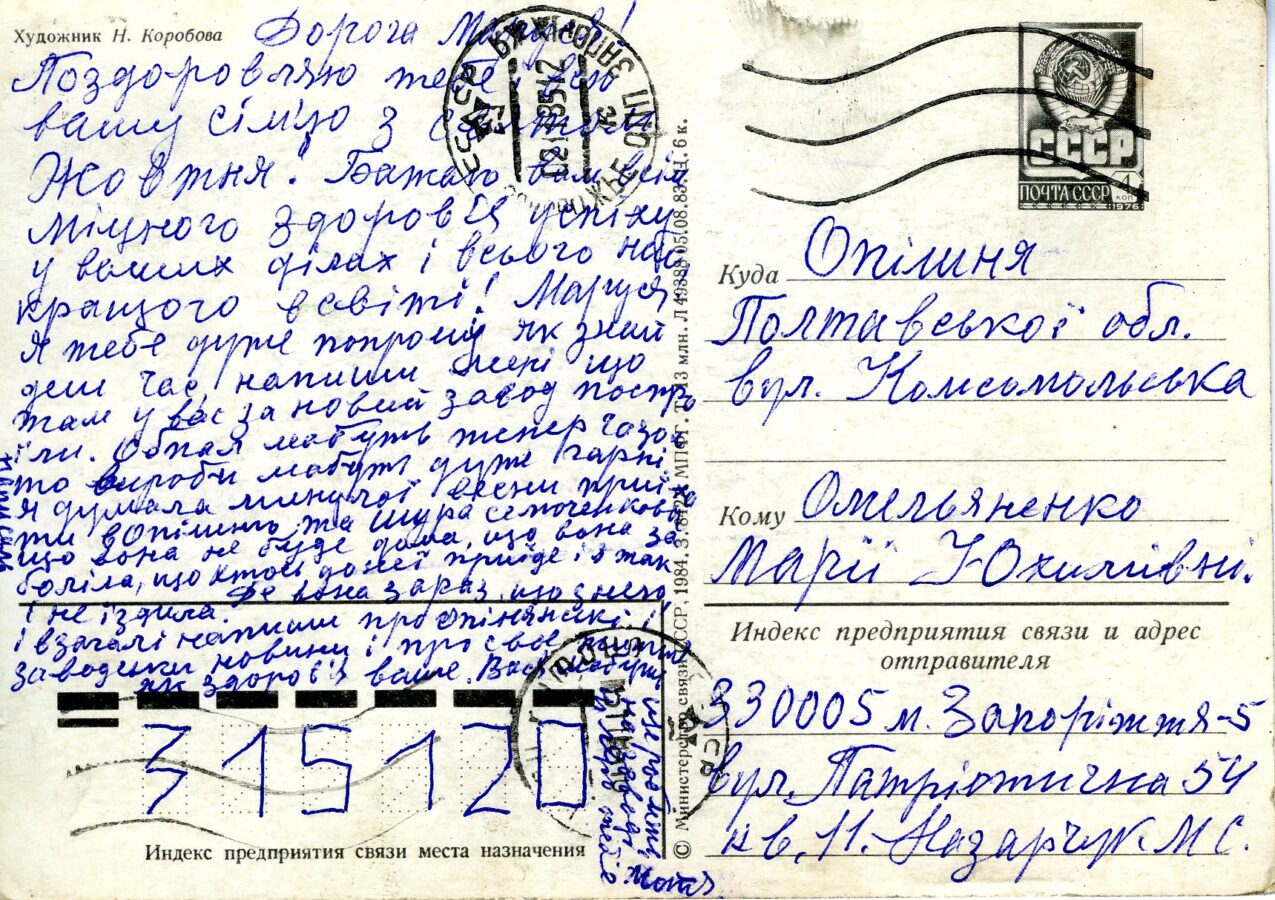 Художник Н. Коробова
Дорога Маруся!
Поздоровляю тебе і всю
вашу сім'ю з святом
Жовтня. Бажаю вам всім
міцного здоров'я успіху
у ваших ділах і всього най
кращого в світі! Маруся
я тебе дуже попрошу як знай
деш час, напиши мені що
там у вас за новий завод постро
їли. Обпал мабуть тепер газо
то вироби мабуть дуже гарні.
Я думала минулої весни приїха
ти в Опішню, та Шура
що вона не буде дома, що вона за
боліла, що хтось до неї приїде і я так
і не їздила. Де вона зараз, що з нею
і взагалі напиши про опішнянські і
заводські новини і про своє життя
як здоров'я ваше. Вас мабуть
СССР
ПОЧТА СССР
4 коп
1976
Куда Опішня
Полтавської обл.
вул. Комсомольська
Кому Омельяненко
Марії Юхимівні.
Индекс предприятия связи и адрес
отправителя
330005 м. Запоріжжя-5
вул. Патріотична 54
кв. 11. Назарчук М С.
315120
Индекс предприятия связи места назначения